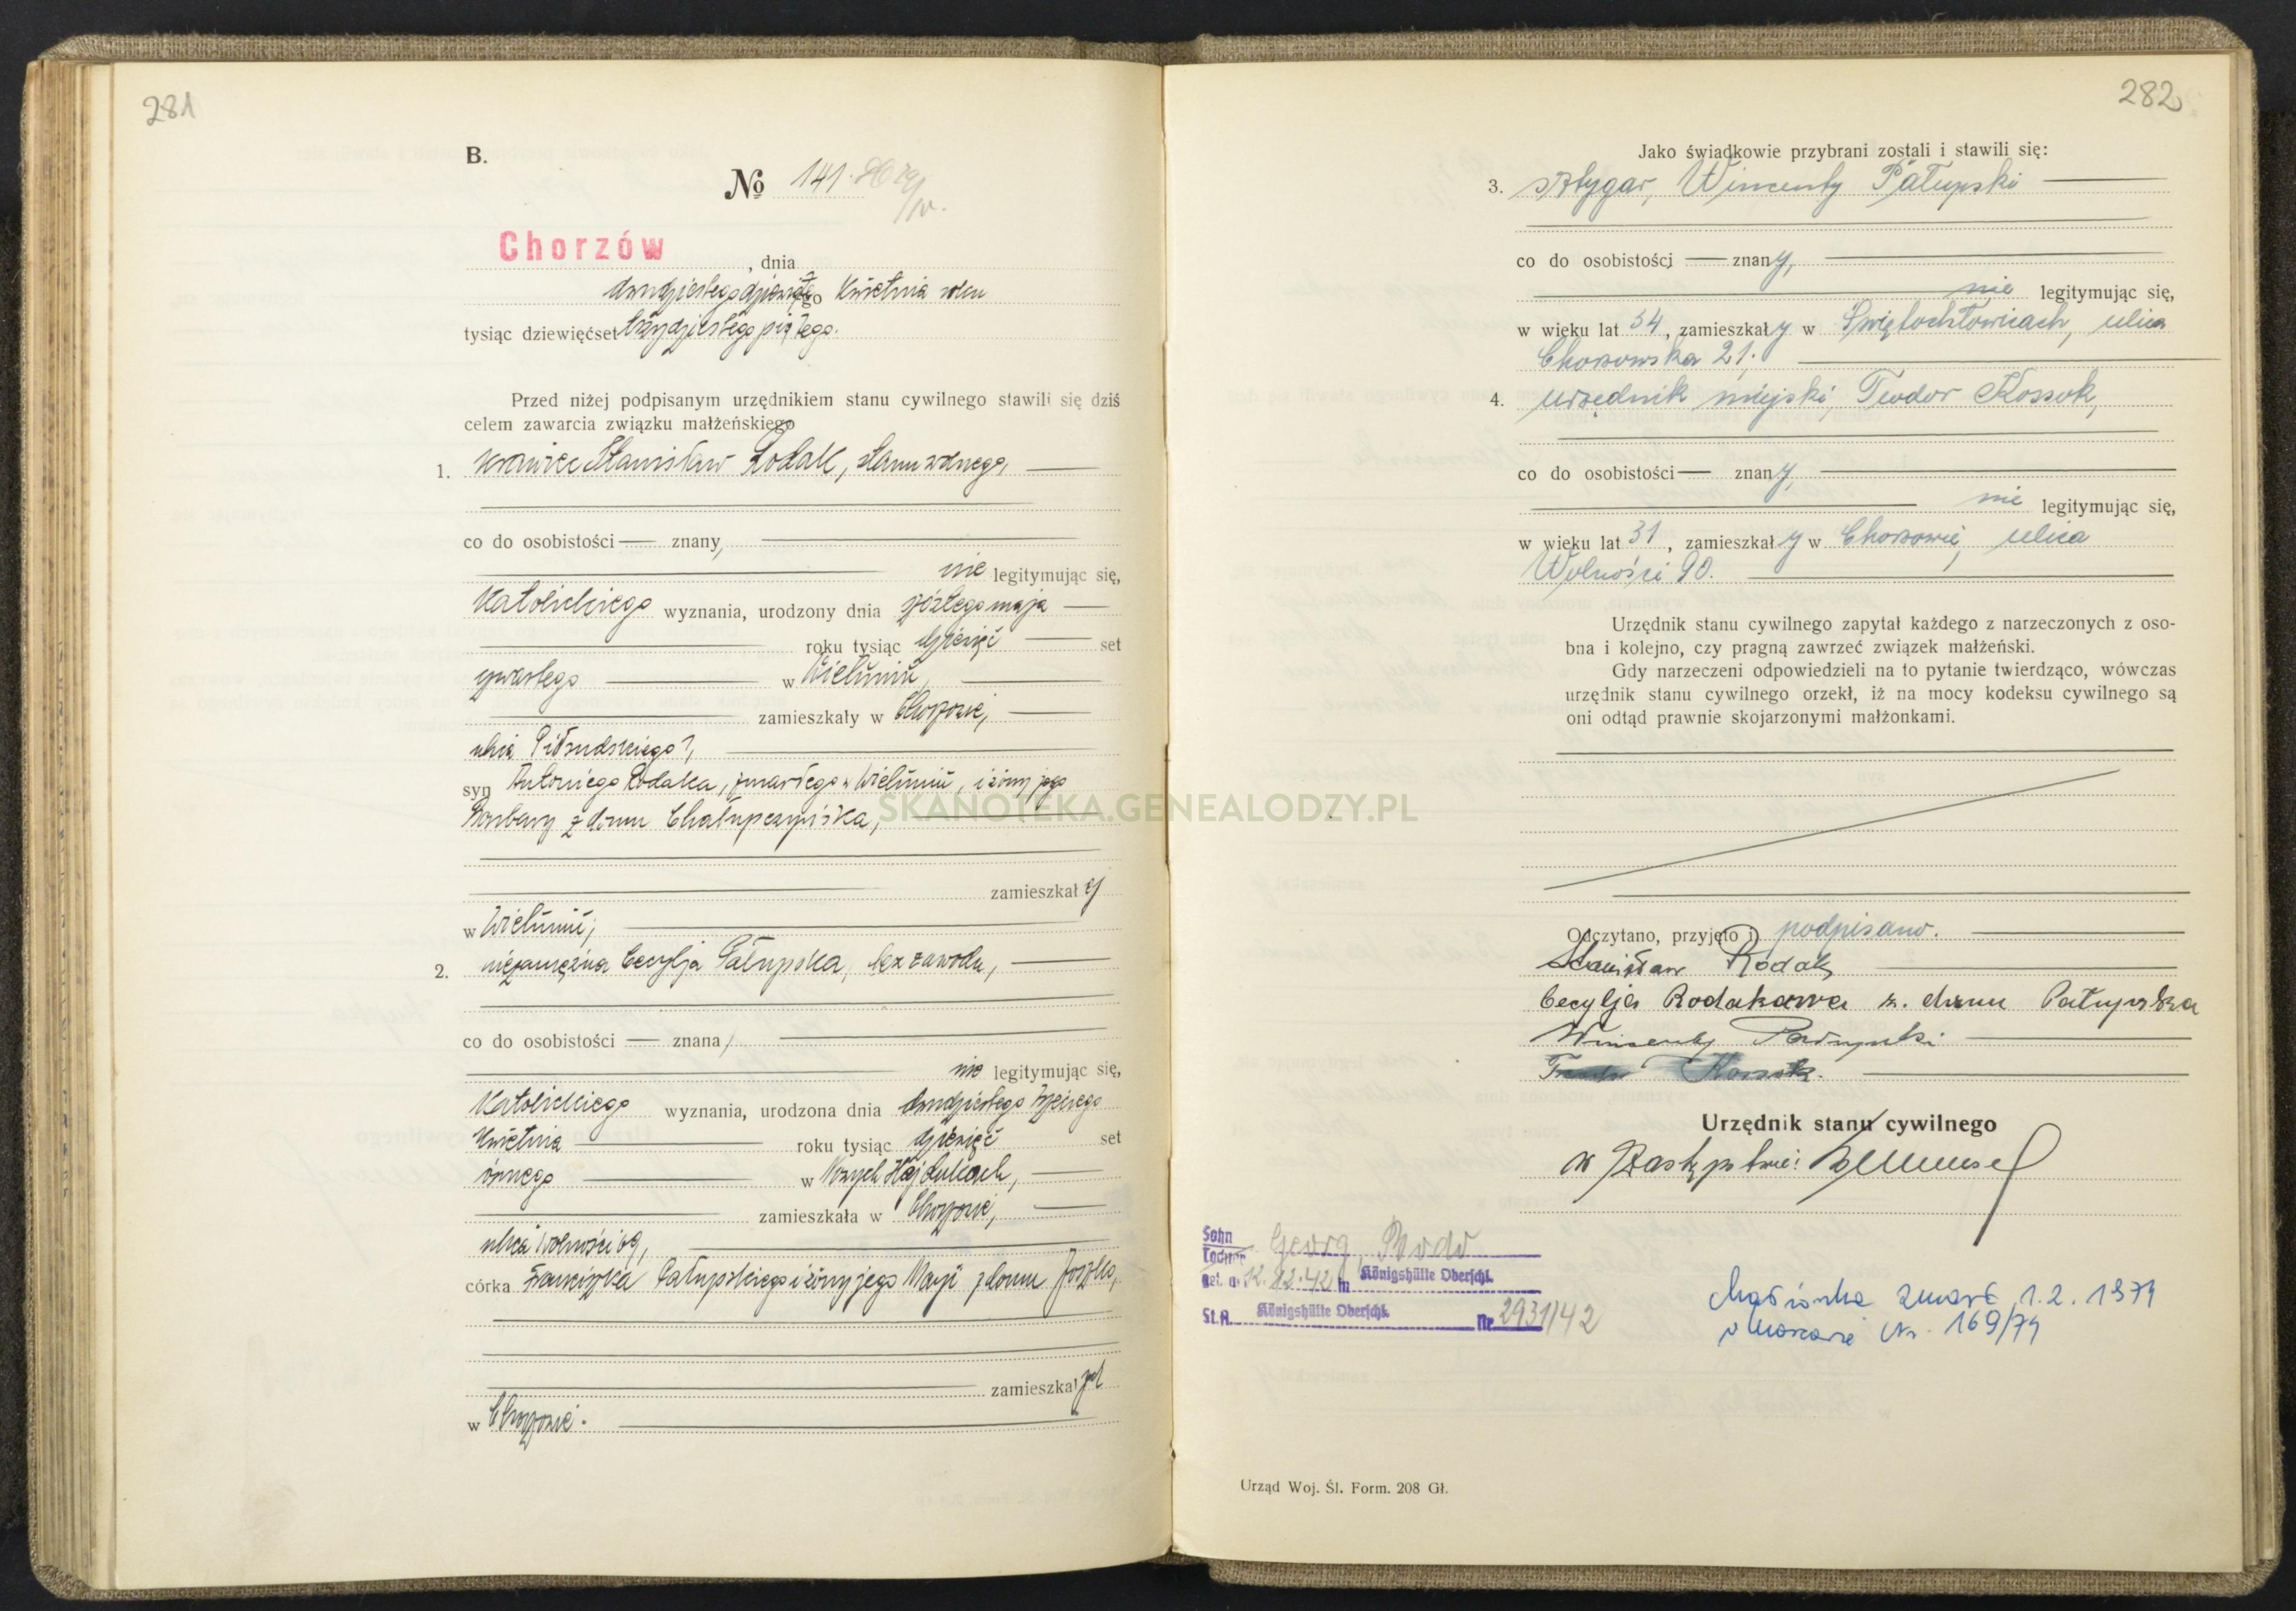 281
B.
№ 141.
Chorzów, dnia
dwudziestego dziewiątego Kwietnia roku
tysiąc dziewięćset trzydziestego piątego.
Przed niżej podpisanym urzędnikiem stanu cywilnego stawili się dziś
celem zawarcia związku małżeńskiego
1. krawiec Stanisław Rodak, stanu wolnego,
co do osobistości — znany,
nie legitymując się,
Katolickiego wyznania, urodzony dnia szóstego maja
roku tysiąc dziewięć set
czwartego w Wieluniu,
zamieszkały w Chorzowie,
ulica Piłsudskiego 7,
syn Antoniego Rodaka, zmarłego w Wieluniu, i żony jego
Barbary z domu
zamieszkałej
w Wieluniu;
2. niezamężna Cecylja Pałupska, bez zawodu,
co do osobistości — znana,
nie legitymując się,
Katolickiego wyznania, urodzona dnia dwudziestego trzeciego
Kwietnia roku tysiąc dziewięć set
ósmego w Nowych Hajdukach,
zamieszkała w Chorzowie,
ulica Wolności
córka Franciszka Pałupskiego i żony jego Marji z domu
zamieszkał
w Chorzowie.
282
Jako świadkowie przybrani zostali i stawili się:
3. sztygar, Wincenty Pałupski
co do osobistości — znany,
nie legitymując się,
w wieku lat 34, zamieszkały w Świętochłowicach, ulica
Chorzowska 21.
4. urzędnik miejski, Teodor Kossok,
co do osobistości — znany,
nie legitymując się,
w wieku lat 31, zamieszkały w Chorzowie, ulica
Wolności 90.
Urzędnik stanu cywilnego zapytał każdego z narzeczonych z oso-
bna i kolejno, czy pragną zawrzeć związek małżeński.
Gdy narzeczeni odpowiedzieli na to pytanie twierdząco, wówczas
urzędnik stanu cywilnego orzekł, iż na mocy kodeksu cywilnego są
oni odtąd prawnie skojarzonymi małżonkami.
Odczytano, przyjęto i podpisano.
Stanisław Rodak
Cecylja Rodakowa z. domu Pałupska
Wincenty Pałupski
Teodor Kossok.
Urzędnik stanu cywilnego
W Zastępstwie:
Sohn
Tochter Georg, Bodo
get. a. 12.12.42 in Königshütte Oberschl.
St.A. Königshütte Oberschl. Nr 2931/42
Małżonka zmarł 1.2.1971
w Chorzowie Nr. 169/71
Urząd Woj. Śl. Form. 208 Gł.
SKANOTEKA.GENEALODZY.PL